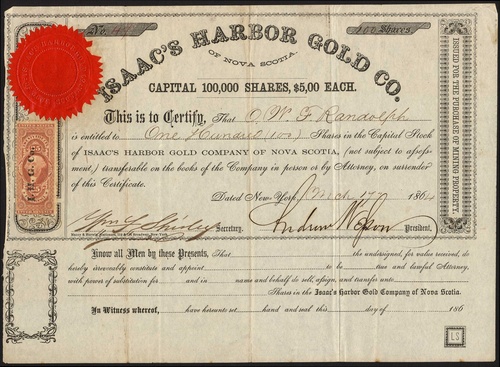 No.
100 Shares
ISAAC'S HARBOR GOLD CO.
OF NOVA SCOTIA.
CAPITAL 100,000 SHARES, $5,00 EACH.
This is to Certify, That O. W. F. Randolph
is entitled to One Hundred (100) Shares in the Capital Stock
of ISAAC'S HARBOR GOLD COMPANY OF NOVA SCOTIA, (not subject to assess-
ment,) transferable on the books of the Company in person or by Attorney, on surrender
of this Certificate.
Dated New-York, March 17 1864
Secretary.
Andrew President.
ISSUED FOR THE PURCHASE OF MINING PROPERTY.
I. H. G. Co.
Know all Men by these Presents, That the undersigned, for value received, do
hereby irrevocably constitute and appoint to be true and lawful Attorney,
with power of substitution for and in name and behalf to sell, assign, and transfer unto
Shares in the Isaac's Harbor Gold Company of Nova Scotia.
In Witness whereof, have hereunto set hand and seal this day of 186
LS